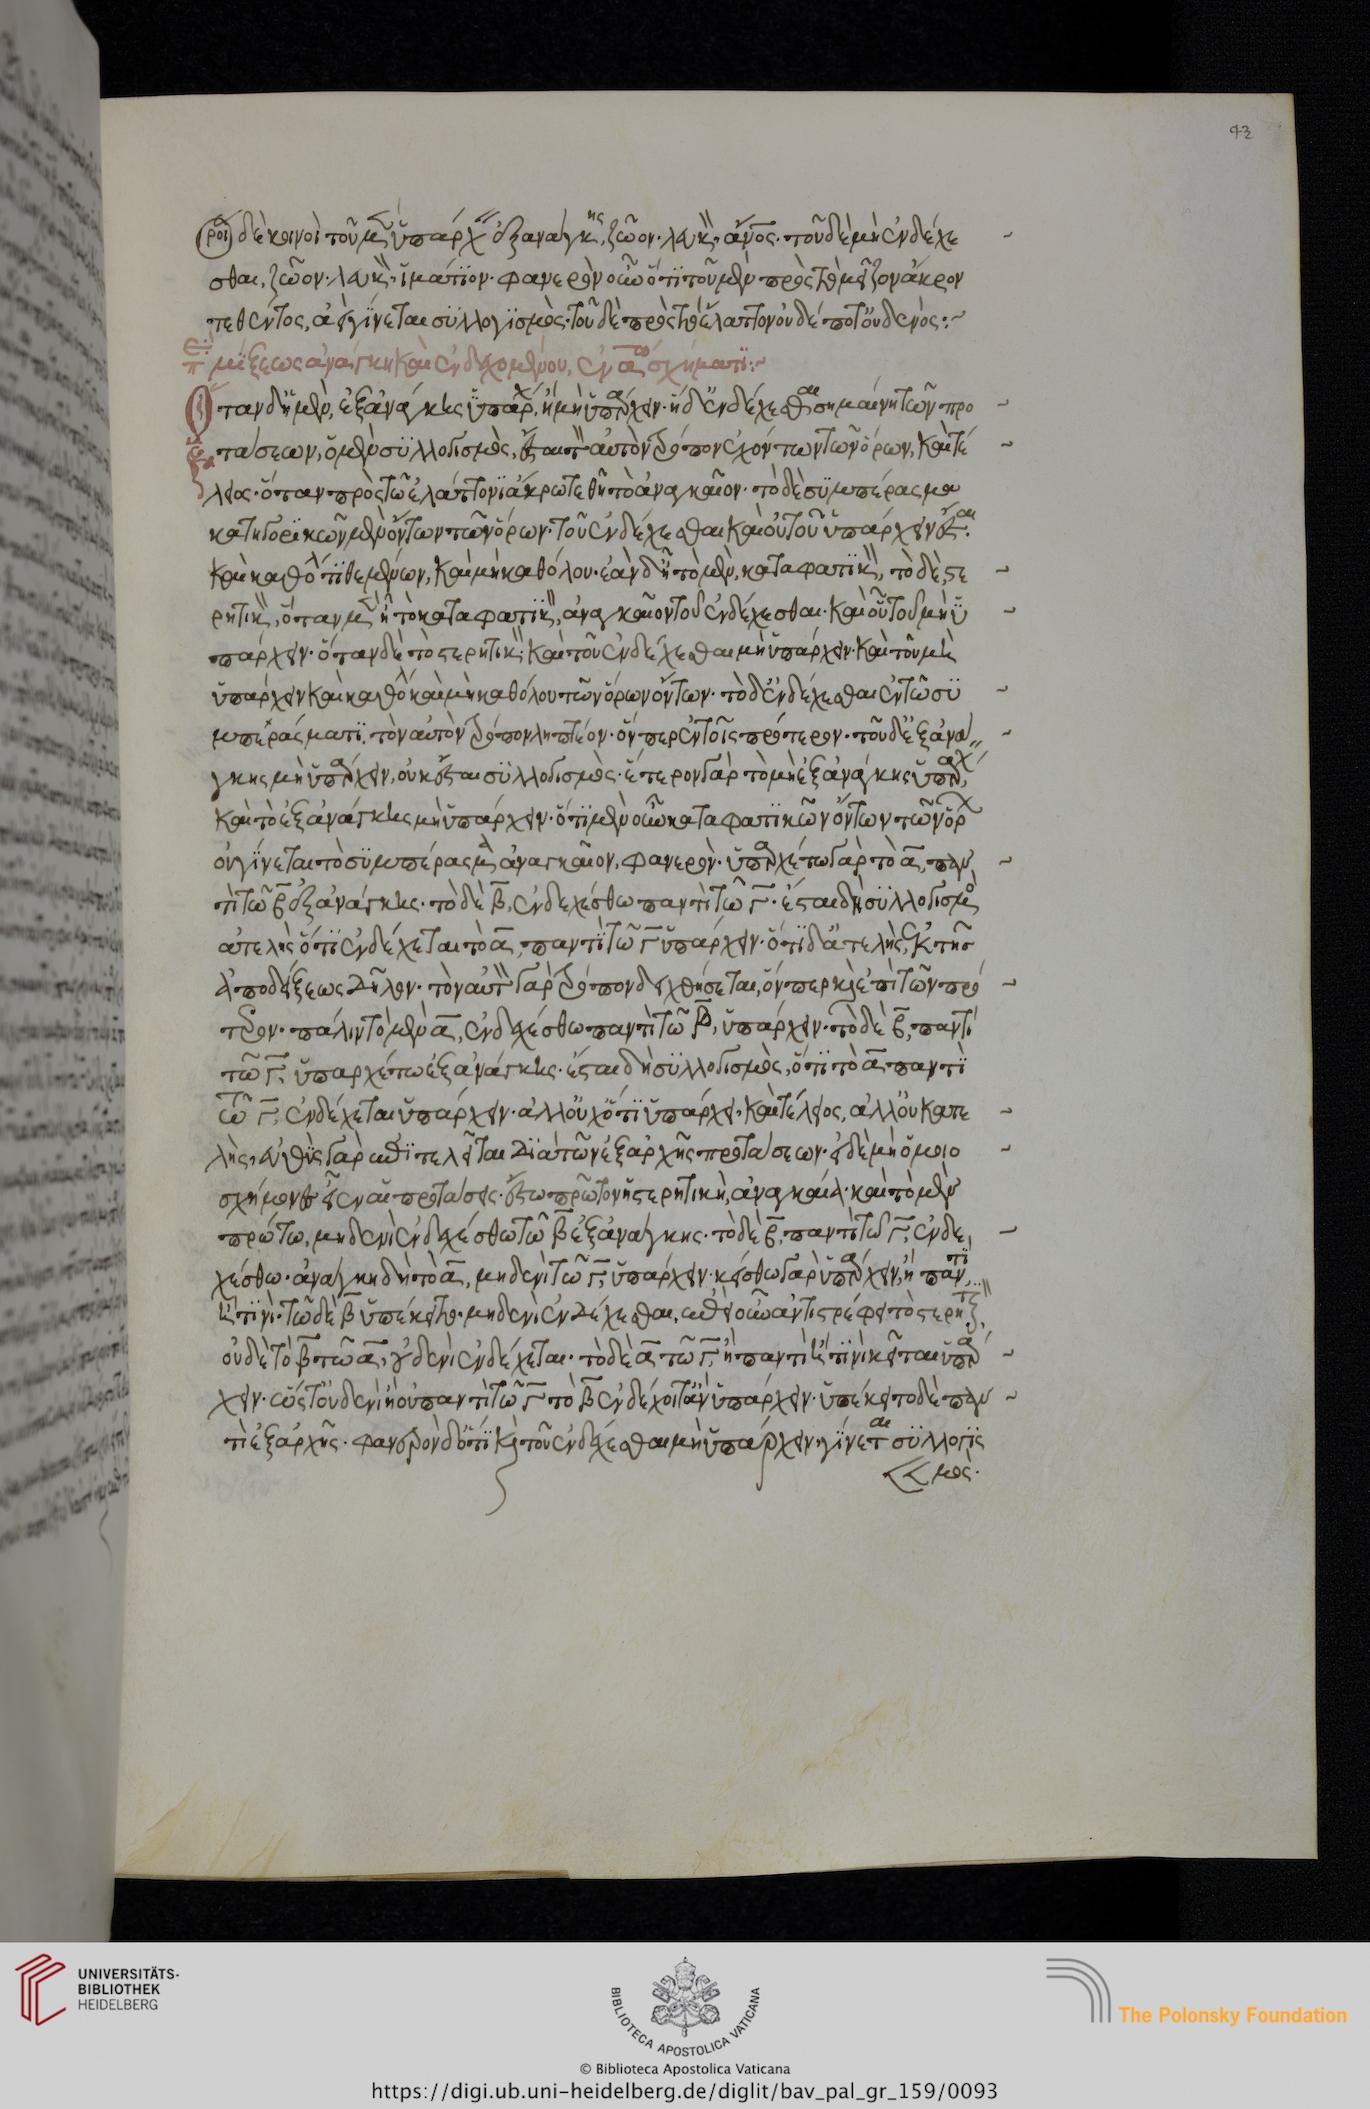 43
ροι δὲ κοινοὶ τοῦ μὲν ὑπάρχειν ἐξ ἀνάγκης, ζῶον· λευκόν· ἄνος· τοῦ δὲ μὴ ἐνδέχε
σθαι, ζῶον· λευκόν· ἱμάτιον· φανερὸν οὖν ὅτι τοῦ μὲν πρὸς τῶ μείζον ἄκρον
τεθέντος, ἀεὶ γίνεται συλλογισμὸς· τοῦ δὲ πρὸς τῶ ἔλαττον οὐδέποτ' οὐδενός:~
μίξεως ἀνάγκη καὶ ἐνδεχομένου, ἐν α ω σχήματι:~
Ὅταν δ' ἡ μὲν, ἐξ ἀνάγκης ὑπάρχειν, ἢ μὴ ὑπάρχειν· ἡ δ' ἐνδέχεσθαι σημαίνη τῶν προ
τάσεων, ὁ μὲν συλλογισμὸς, ἔσται τὸν αὐτὸν τρόπον ἐχόντων τῶν ὅρων, καὶ τέ
λειος· ὅταν πρὸς τῶ ἐλάττονι ἄκρω τεθῆ τὸ ἀναγκαῖον· τὸ δὲ συμπέρασμα
κατηγορικῶν μὲν ὄντων τῶν ὅρων· τοῦ ἐνδέχεσθαι καὶ οὐ τοῦ ὑπάρχειν ἔσται·
καὶ καθόλου τιθεμένων, καὶ μὴ καθόλου· ἐὰν δ' ῆ τὸ μὲν, καταφατικόν, τὸ δὲ, στε
ρητικόν, ὅταν μὲν ῆ τὸ καταφατικόν, ἀναγκαῖον τοῦ ἐνδέχεσθαι· καὶ οὐ τοῦ μὴ ὑ
πάρχειν· ὅταν δὲ τὸ στερητικόν· καὶ τοῦ ἐνδέχεσθαι μὴ ὑπάρχειν· καὶ τοῦ μὴ
ὑπάρχειν καὶ καθόλου καὶ μὴ καθόλου τῶν ὅρων ὄντων· τὸ δ' ἐνδέχεσθαι ἐν τῶ συ
μπεράσματι, τὸν αὐτὸν τρόπον ληπτέον· ὅνπερ ἐν τοῖς πρότερον· τοῦ δ' ἐξ ἀνά
γκης μὴ ὑπάρχειν, οὐκ ἔσται συλλογισμὸς· ἕτερον γὰρ τὸ μὴ ἐξ ἀνάγκης ὑπάρχειν,
καὶ τὸ ἐξ ἀνάγκης μὴ ὑπάρχειν· ὅτι μὲν οὖν καταφατικῶν ὄντων τῶν ὅρων
οὐ γίνεται τὸ συμπέρασμα ἀναγκαῖον, φανερὸν· ὑπαρχέτω γὰρ τὸ α, παν
τὶ τῶ β ἐξ ἀνάγκης· τὸ δὲ β, ἐνδεχέσθω παντὶ τῶ γ· ἔσται δὴ συλλογισμὸς
ἀτελὴς ὅτι ἐνδέχεται τὸ α, παντὶ τῶ γ ὑπάρχειν· ὅτι δ' ἀτελὴς, ἐκ τῆς
ἀποδείξεως δῆλον· τὸν αὐτὸν γὰρ τρόπον δειχθήσεται, ὅνπερ καὶ ἐπὶ τῶν πρό
τερον· πάλιν τὸ μὲν α, ἐνδεχέσθω παντὶ τῶ β, ὑπάρχειν· τὸ δὲ β, παντὶ
τῶ γ, ὑπαρχέτω ἐξ ἀνάγκης· ἔσται δὴ συλλογισμὸς, ὅτι τὸ α παντὶ
τῶ γ, ἐνδέχεται ὑπάρχειν· ἀλλ' οὐχ' ὅτι ὑπάρχει· καὶ τέλειος, ἀλλ' οὐκ ἀτε
λὴς, εὐθὺς γὰρ ἐπιτελεῖται διὰ τῶν ἐξ ἀρχῆς προτάσεων· εἰ δὲ μὴ ὁμοιο
σχήμονες εἶεν αἱ προτάσεις· ἔστω πρῶτον ἡ στερητικὴ, ἀναγκαία· καὶ τὸ μὲν
πρώτω, μηδενὶ ἐνδεχέσθω τῶ β ἐξ ἀνάγκης· τὸ δὲ β, παντὶ τῶ γ, ἐνδε
χέσθω· ἀνάγκη δὴ τὸ α, μηδενὶ τῶ γ, ὑπάρχειν· κείσθω γὰρ ὑπάρχειν, ἢ παντὶ
ἢ τινὶ· τῶ δὲ β ὑπέκειτο· μηδενὶ ἐνδέχεσθαι, ἐπεὶ οὖν ἀντιστρέφει τὸ στερητικόν,
οὐδὲ τὸ β τῶ α, οὐδενὶ ἐνδέχεται· τὸ δὲ α τῶ γ, ἢ παντὶ ἢ τινὶ κεῖται ὑπάρ
χειν· ὥστ' οὐδενὶ ἢ οὐ παντὶ τῶ γ τὸ β ἐνδέχοιτ' ἂν ὑπάρχειν· ὑπέκειτο δὲ παν
τὶ ἐξ ἀρχῆς· φανερὸν δ' ὅτι καὶ τοῦ ἐνδέχεσθαι μὴ ὑπάρχειν, γίνεται συλλογις
μὸς·
UNIVERSITÄTS-
BIBLIOTHEK
HEIDELBERG
BIBLIOTECA APOSTOLICA VATICANA
The Polonsky Foundation
© Biblioteca Apostolica Vaticana
https://digi.ub.uni-heidelberg.de/diglit/bav_pal_gr_159/0093